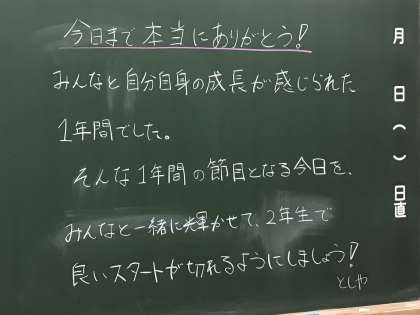 今日まで本当にありがとう!
みんなと自分自身の成長が感じられた
1年間でした。
そんな1年間の節目となる今日を、
みんなと一緒に輝かせて、2年生で
良いスタートが切れるようにしましょう!
としや
月
日
(
)
日直